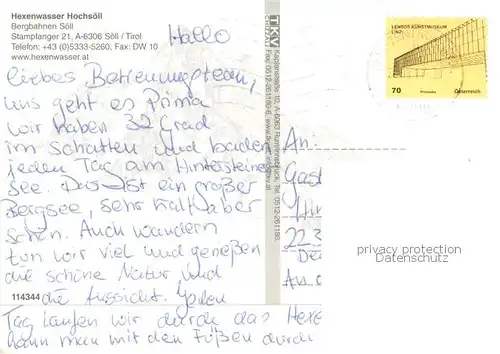 Hexenwasser Hochsöll
Bergbahnen Söll
Stampfanger 21, A-6306 Söll / Tirol
Telefon: +43 (0)5333-5260, Fax: DW 10
www.hexenwasser.at
Hallo
liebes Betreuungsteam,
uns geht es Prima
wir haben 32 Grad
im Schatten und baden
jeden Tag am Hintersteiner
see. Das ist ein großer
Bergsee, sehr kalt aber
schön. Auch wandern
tun wir viel und genießen
die schöne Natur und
die Aussicht. Jeden
Tag laufen wir durch das Hexe
kann man mit den Füßen durch
114344
TKV
LENTOS KUNSTMUSEUM
LINZ
70
Österreich
An:
Gast
22.3
An
privacy protection
Datenschutz